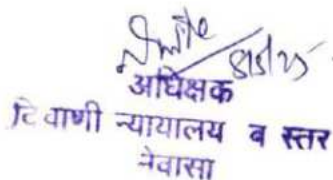 अधिक्षक
दिवाणी न्यायालय ब स्तर
नेवासा